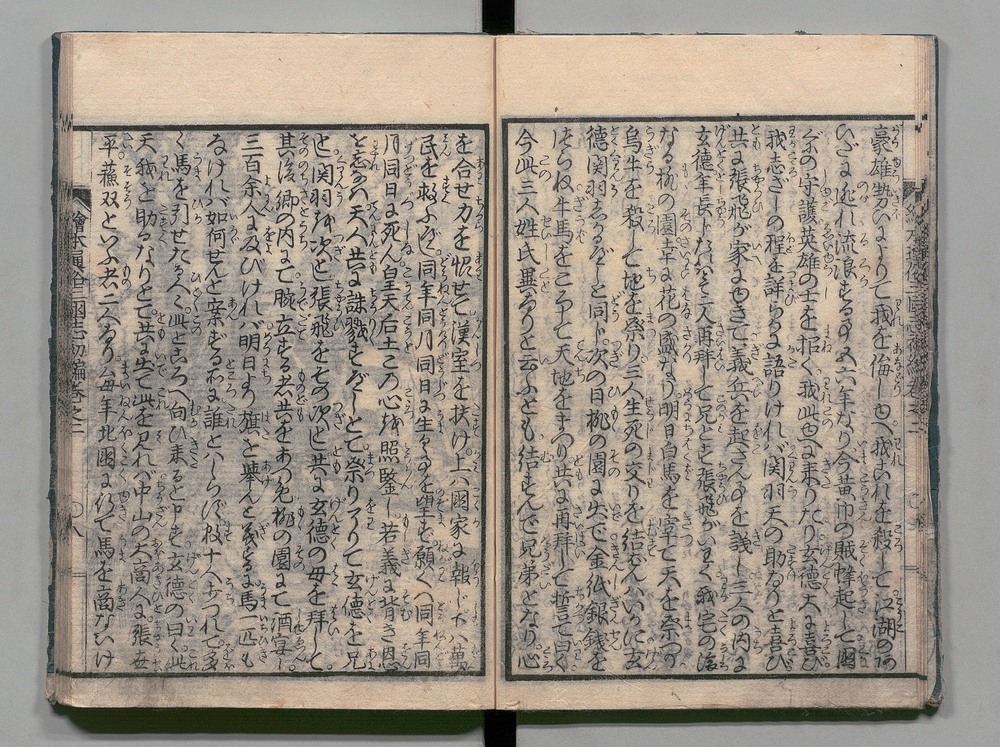 豪雄勢ひによりて我を侮りしゆへ我これを殺して江湖のあ
いだに迯れ流浪すること五六年なり今黄巾の賊蜂起して國
ぐの守護英雄の士を招く我此ゆへに来りたり玄徳大に喜び
我志ざしの程を詳らかに語りければ関羽天の助なりと喜び
共に張飛が家にゆきて義兵を起さん事を議し三人の内に
玄徳年長じたればとて二人再拜して兄とす張飛がいはく我宅の後
なる桃の園幸に花の盛なり明日白馬を宰て天を祭つり
烏牛を殺して地を祭り三人生死の交りを結むはいかに玄
徳関羽しかるべしと同じ次の日桃の園に出て金紙銀銭を
つらね牛馬をころして天地をまつり共に再拜して誓て曰く
今此三人姓氏異なりと云ふとも結むで兄弟となり心
を合せ力を恊せて漢室を扶け上ハ國家に報じ下ハ萬
民を救ふべし同年同月同日に生るることを望まず願くハ同年同
月同日に死ん皇天后土この心を照鑒し若義に背き恩
を忘るれバ天人共に誅戮すべしとて祭りをハりて玄徳を兄
とし関羽を次とし張飛をその次とし共に玄徳の母を拜して
其後郷の内にて腕立する者共をあつめ桃の園にて酒宴し
三百余人に及びければ明日より旗を挙んと義するに馬一匹も
なければ如何せんと案ずる所に誰とハしらず数十人歩つれて多
く馬を引せたる人此ところへ向ひ来ると申す玄徳の曰く此
天我を助るなりとて共に出て此を見れバ中山の大商人に張世
平蘓双といふ者二人なり毎年北國に行て馬を商ないけ
繪本通俗三國志初編巻之一 〇八